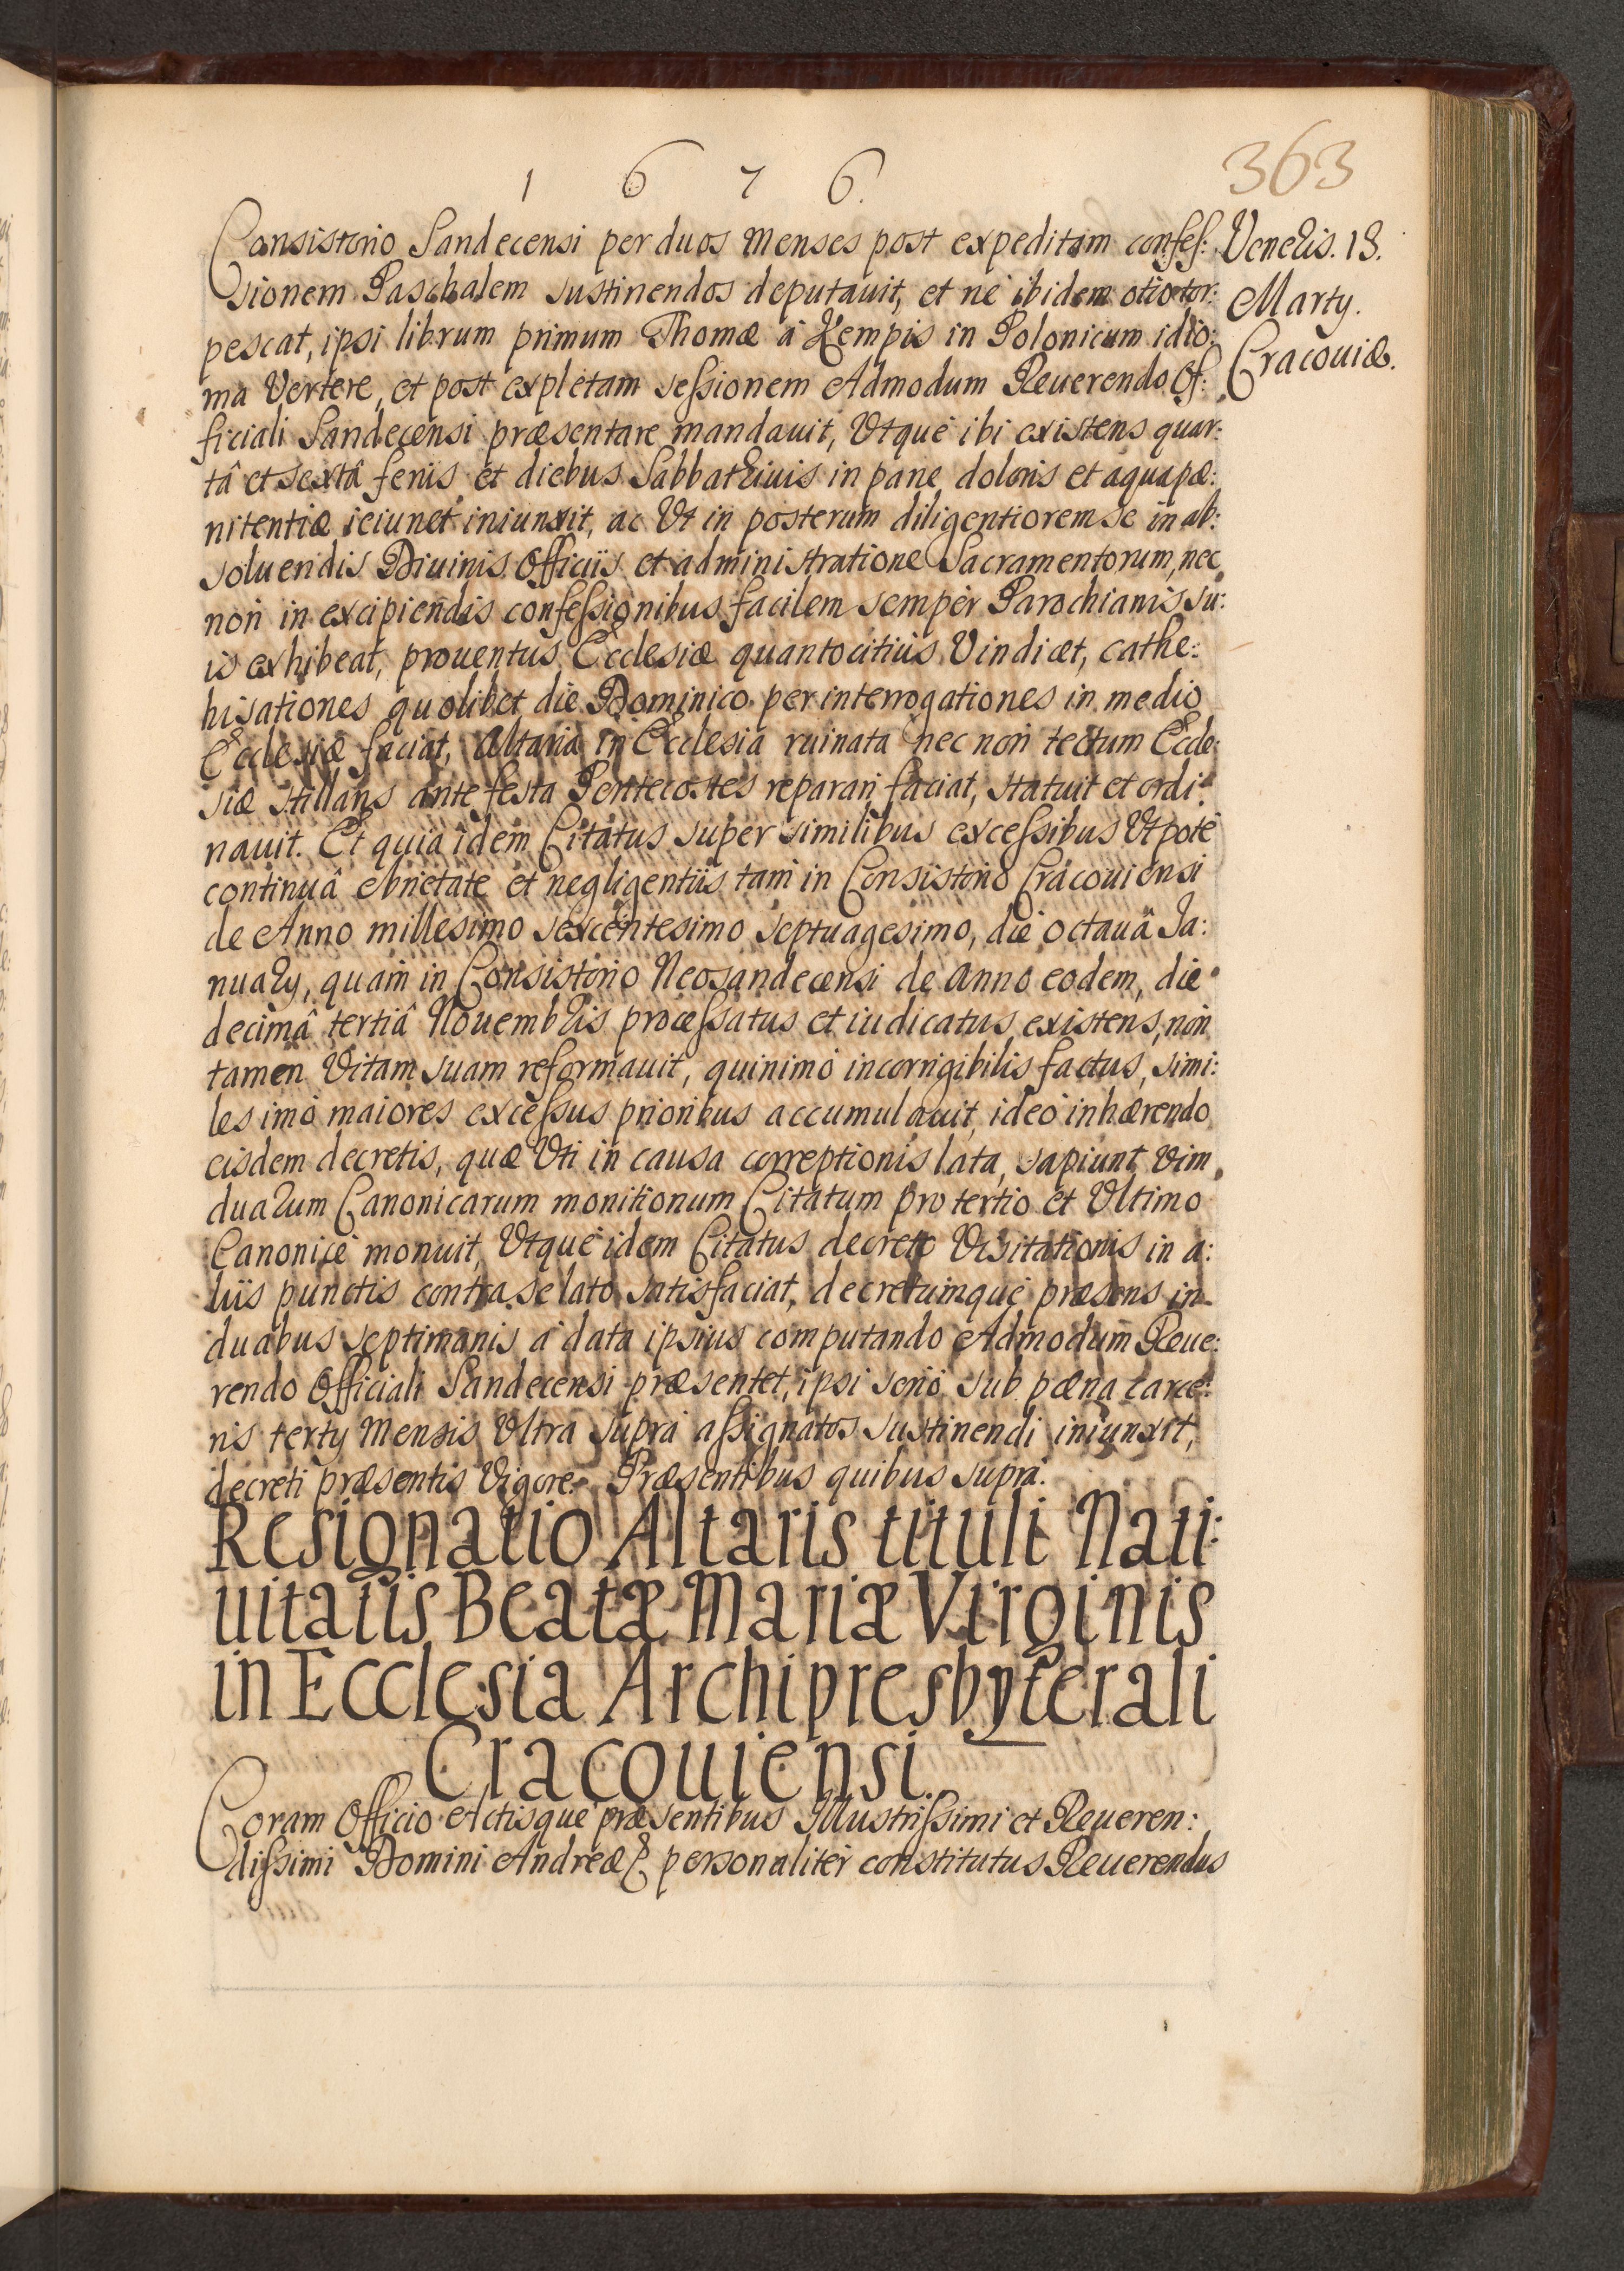 1 6 7 6.
363
Consistorio Sandecensi per duos Menses post expeditam confes:
sionem Paschalem sustinendos deputauit, et nè ibidem otio tor:
pescat, ipsi librum primum Thomæ à Kempis in Polonicum idio:
ma Vertere, et post expletam sessionem Admodum Reuerendo Of:
ficiali Sandecensi præsentare mandauit, Vtquè ibi existens quar:
tâ et sextâ ferijs et diebus Sabbathiuis in pane doloris et aqua pæ:
nitentiæ ieiunet iniunxit, ac Vt in posterum diligentiorem se in ab:
soluendis Diuinis Officiis et administratione Sacramentorum, nec
non in excipiendis confessionibus facilem semper Parochianis su:
is exhibeat, prouentus Ecclesiæ quantocitiùs Vindicet, cathe:
hisationes quolibet die Dominico per interrogationes in medio
Ecclesiæ faciat, Altaria in Ecclesia ruinata nec non tectum Eccle:
siæ stillans ante festa Pentecostes reparari faciat, statuit et ordi:
nauit. Et quia idem Citatus super similibus excessibus Vtpotè
continuâ ebrietate et negligentiis tam in Consistorio Cracouiensi
de Anno millesimo sexcentesimo septuagesimo, die octauâ Ja:
nuary, quam in Consistorio Neosandecensi de Anno eodem, die
decimâ tertiâ Nouembris processatus et iudicatus existens, non
tamen Vitam suam reformauit, quinimò incorrigibilis factus, simi:
les imò maiores excessus prioribus accumulauit, ideò inhærendo
eisdem decretis, quæ Vti in causa correptionis lata, sapiunt Vim
duarum Canonicarum monitionum Citatum pro tertio et Vltimo
Canonicè monuit, Vtquè idem Citatus decreto Visitationis in a:
liis punctis contra se lato satisfaciat, decretumquè præsens in
duabus septimanis à data ipsius computando Admodum Reue:
rendo Officiali Sandecensi præsentet, ipsi seriò sub pæna carce:
ris terty Mensis Vltra suprà assignatos sustinendi iniunxit,
decreti præsentis Vigore. Præsentibus quibus suprà.
Veneris. 18.
Marty.
Cracouiæ.
Resignatio Altaris tituli Nati:
uitatis Beatæ Mariæ Virginis
in Ecclesia Archipresbyterali
Cracouiensi.
Coram Officio Actisquè præsentibus Illustrissimi et Reueren:
dissimi Domini Andreæ personaliter constitutus Reuerendus